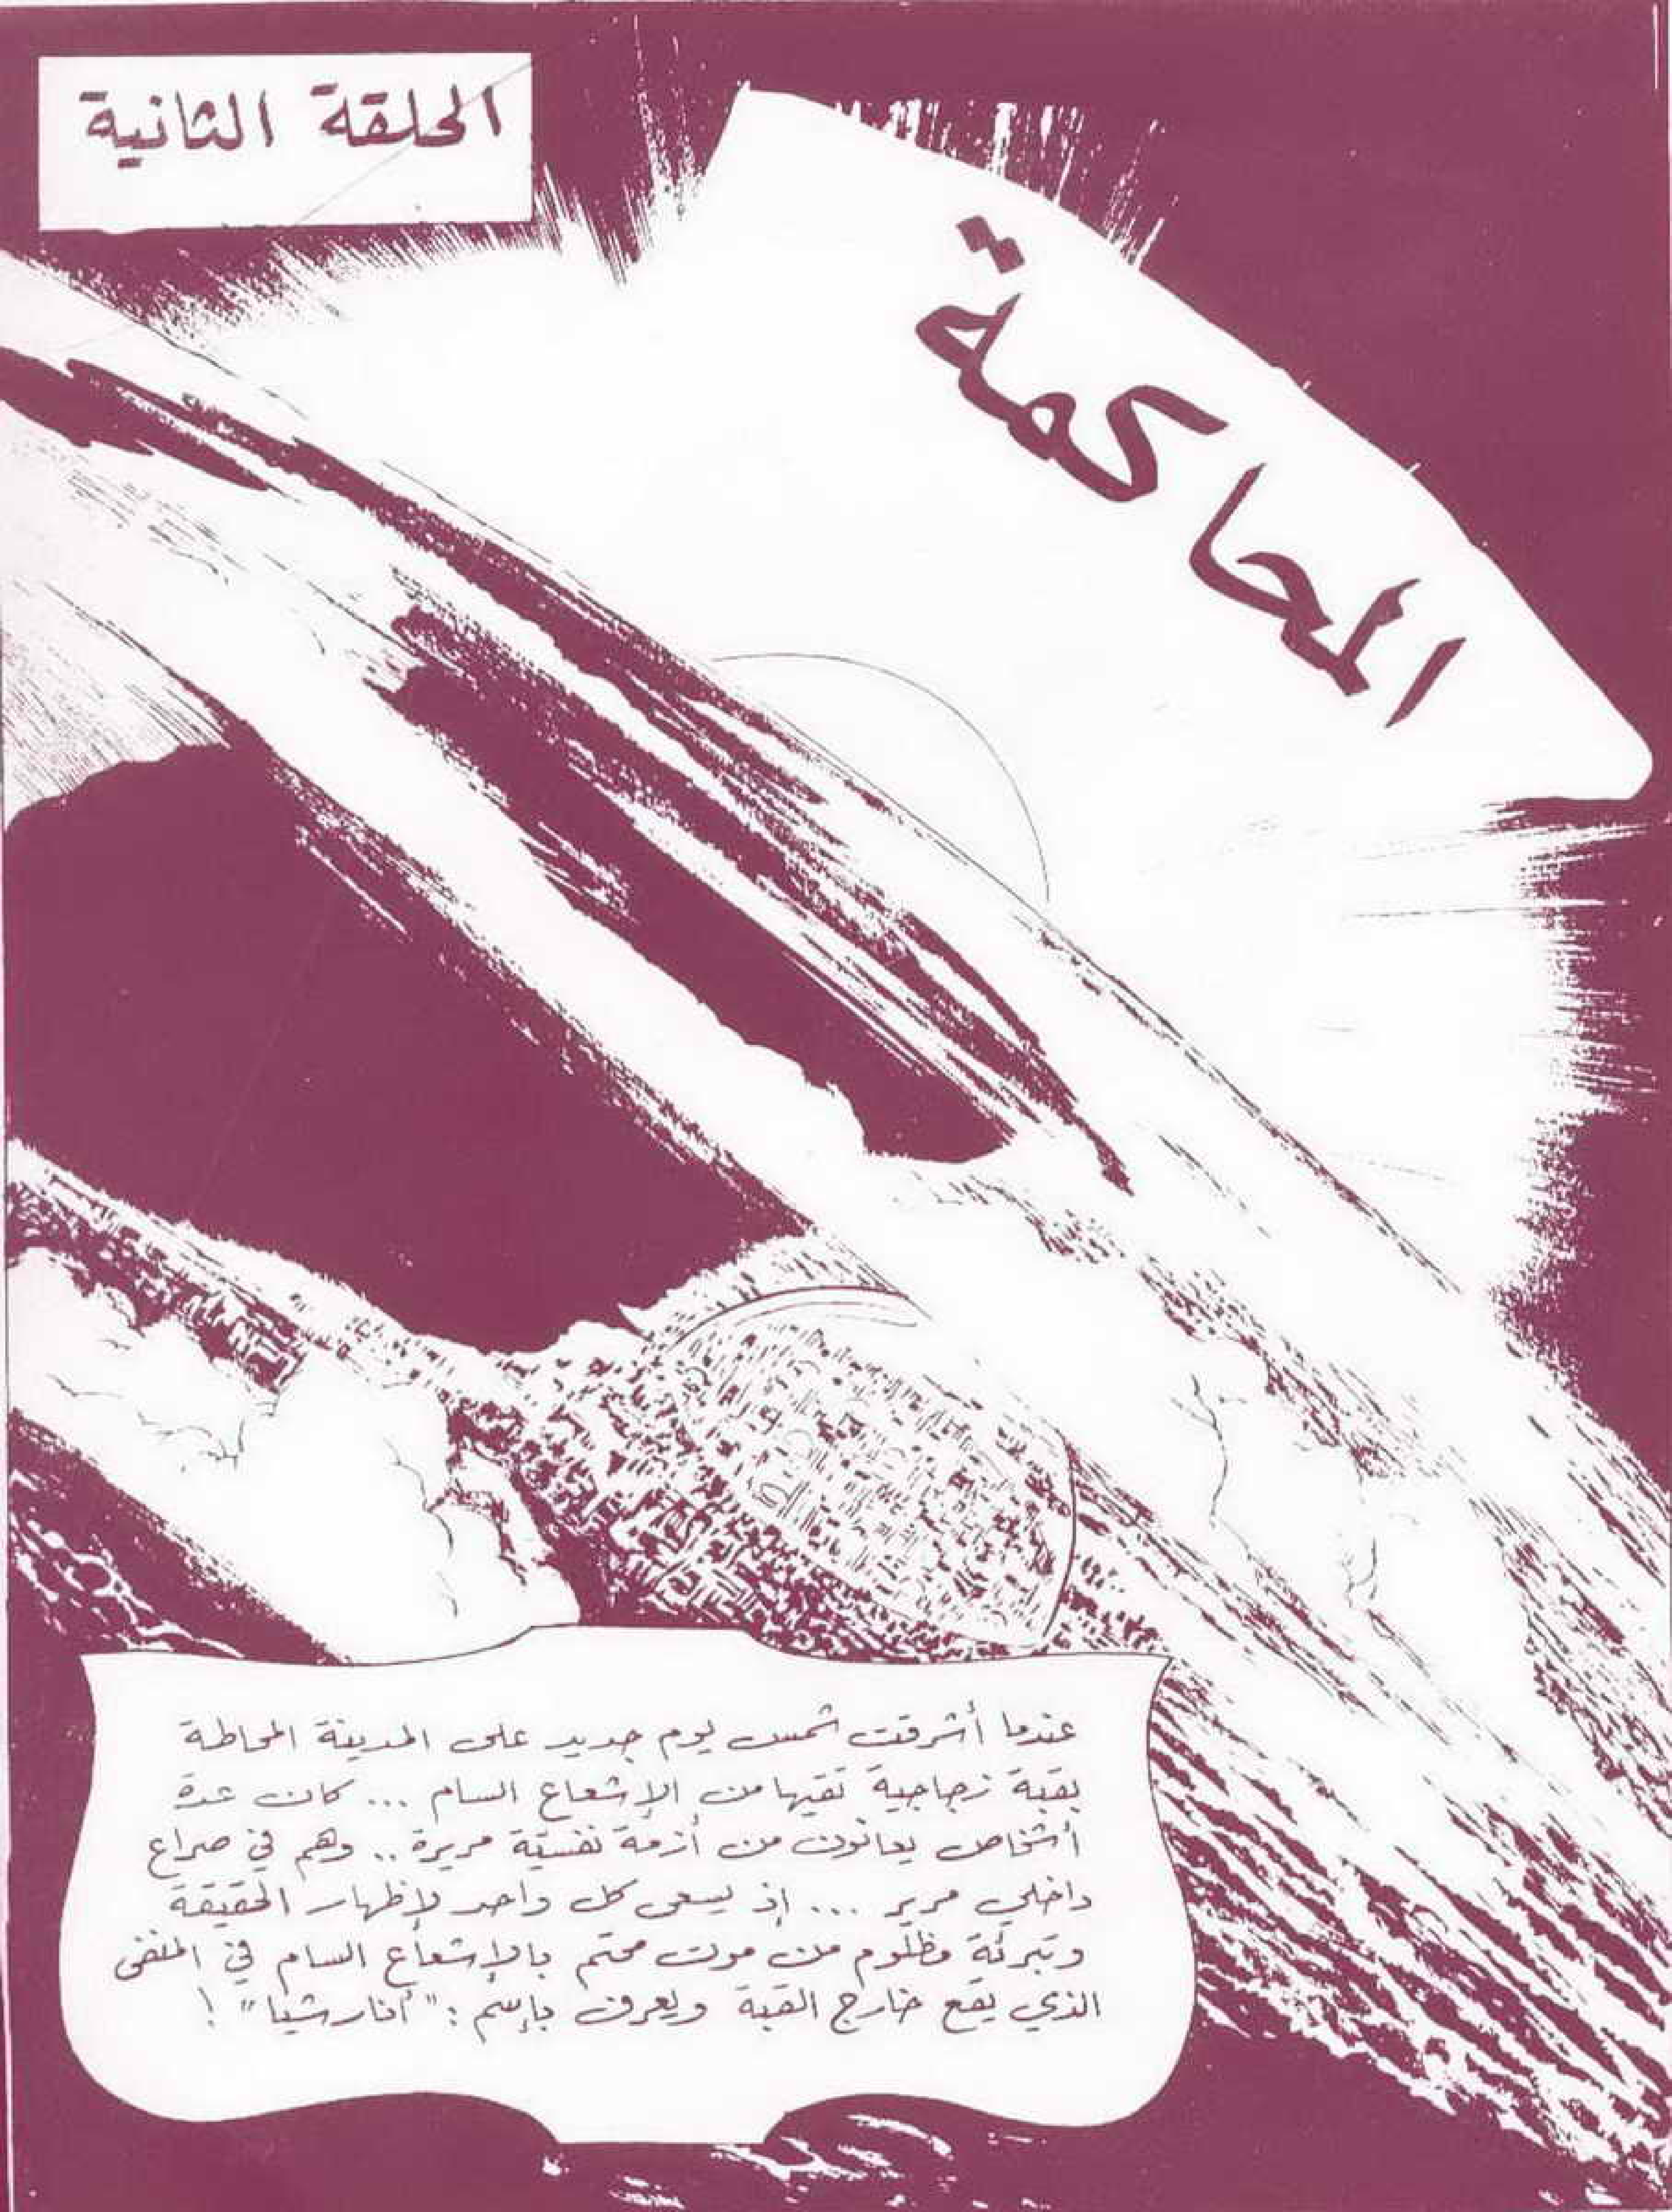 الحلقة الثانية
المحاكمة
عندما أشرقت شمس يوم جديد على المدينة المحاطة
بقبة زجاجية تقيها من الإشعاع السام ... كان عدة
أشخاص يعانون من أزمة نفسيّة مريرة .. وهم في صراع
داخلي مرير ... إذ يسعى كل واحد لإظهار الحقيقة
وتبرئة مظلوم من موت محتم بالإشعاع السام في المنفى
الذي يقع خارج القبة ويعرف بإسم : "أنارشيا" !